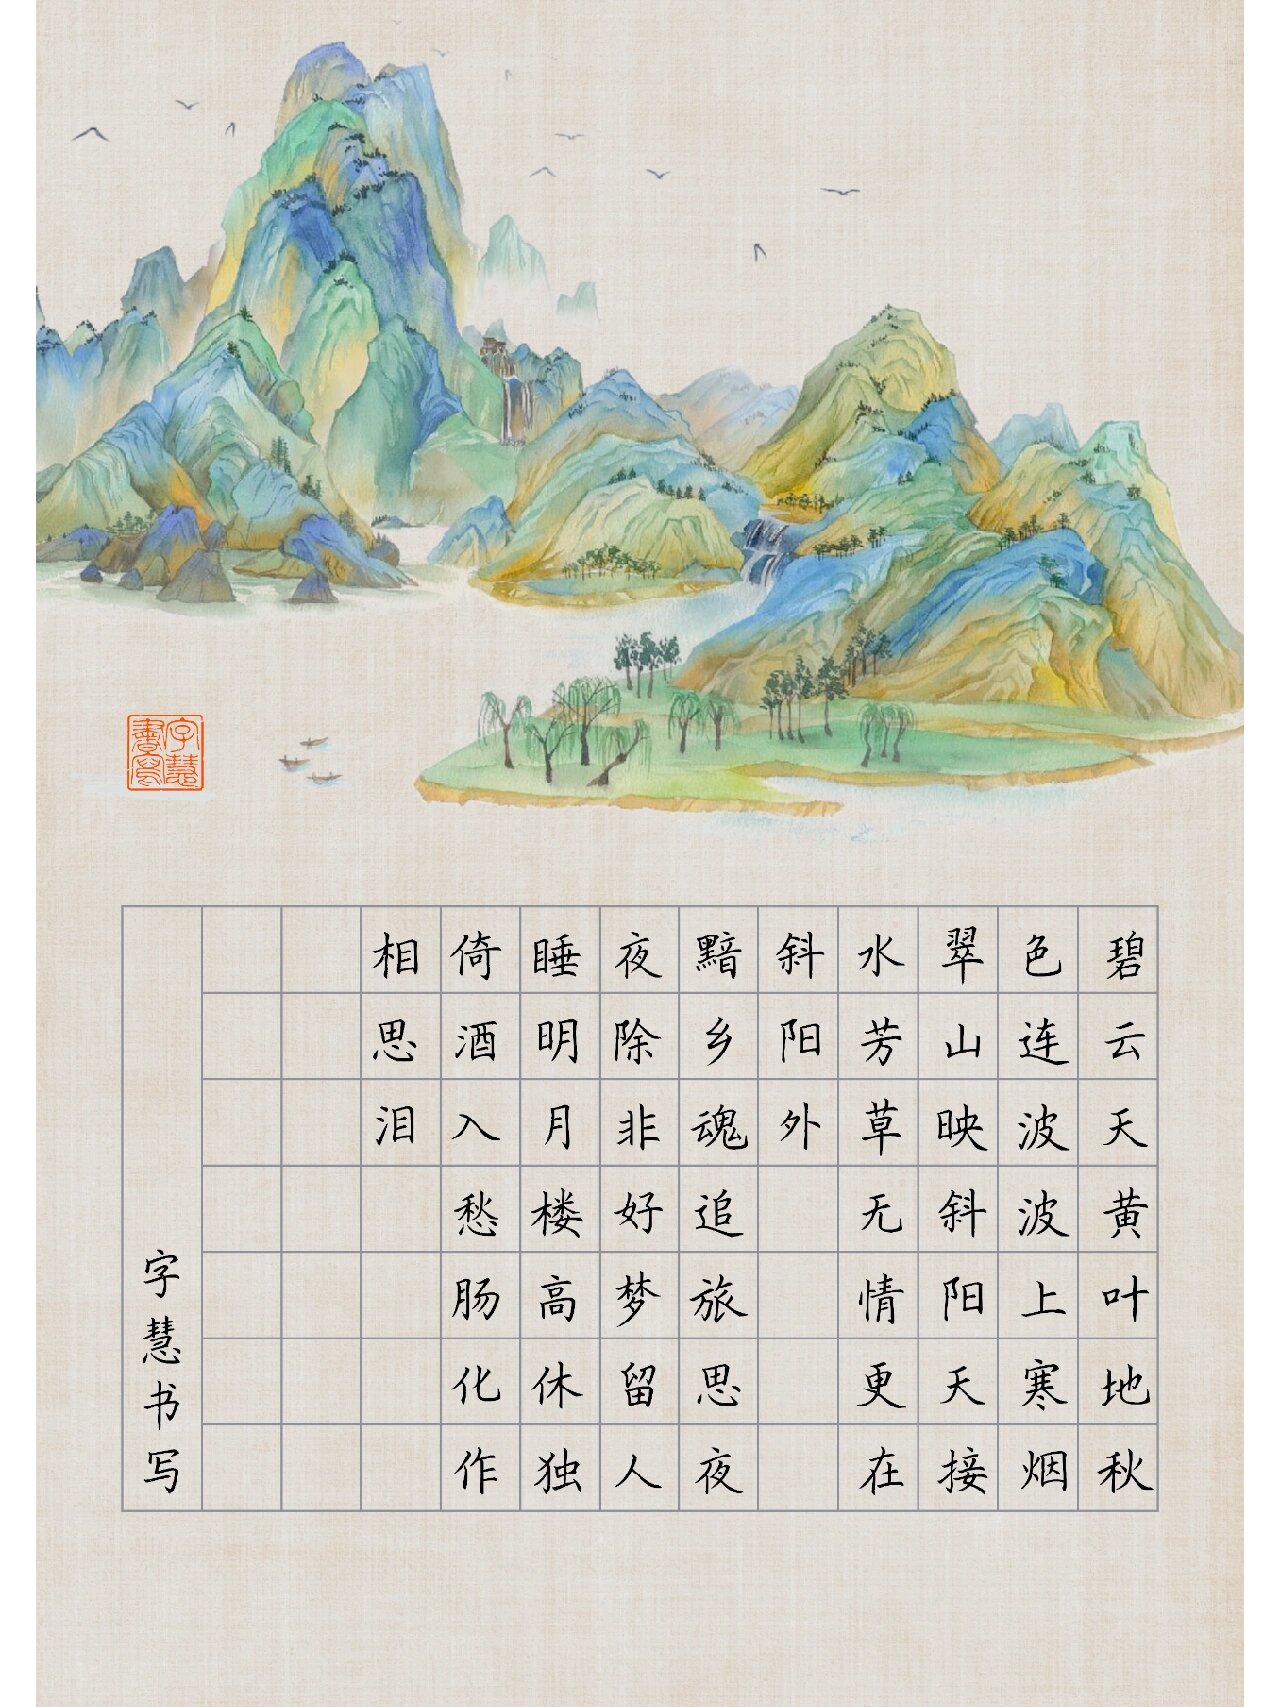 碧云天黄叶地秋
色连波波上寒烟
翠山映斜阳天接
水芳草无情更在
斜阳外
黯乡魂追旅思夜
夜除非好梦留人
睡明月楼高休独
倚酒入愁肠化作
相思泪
字慧书写
字慧
書寫